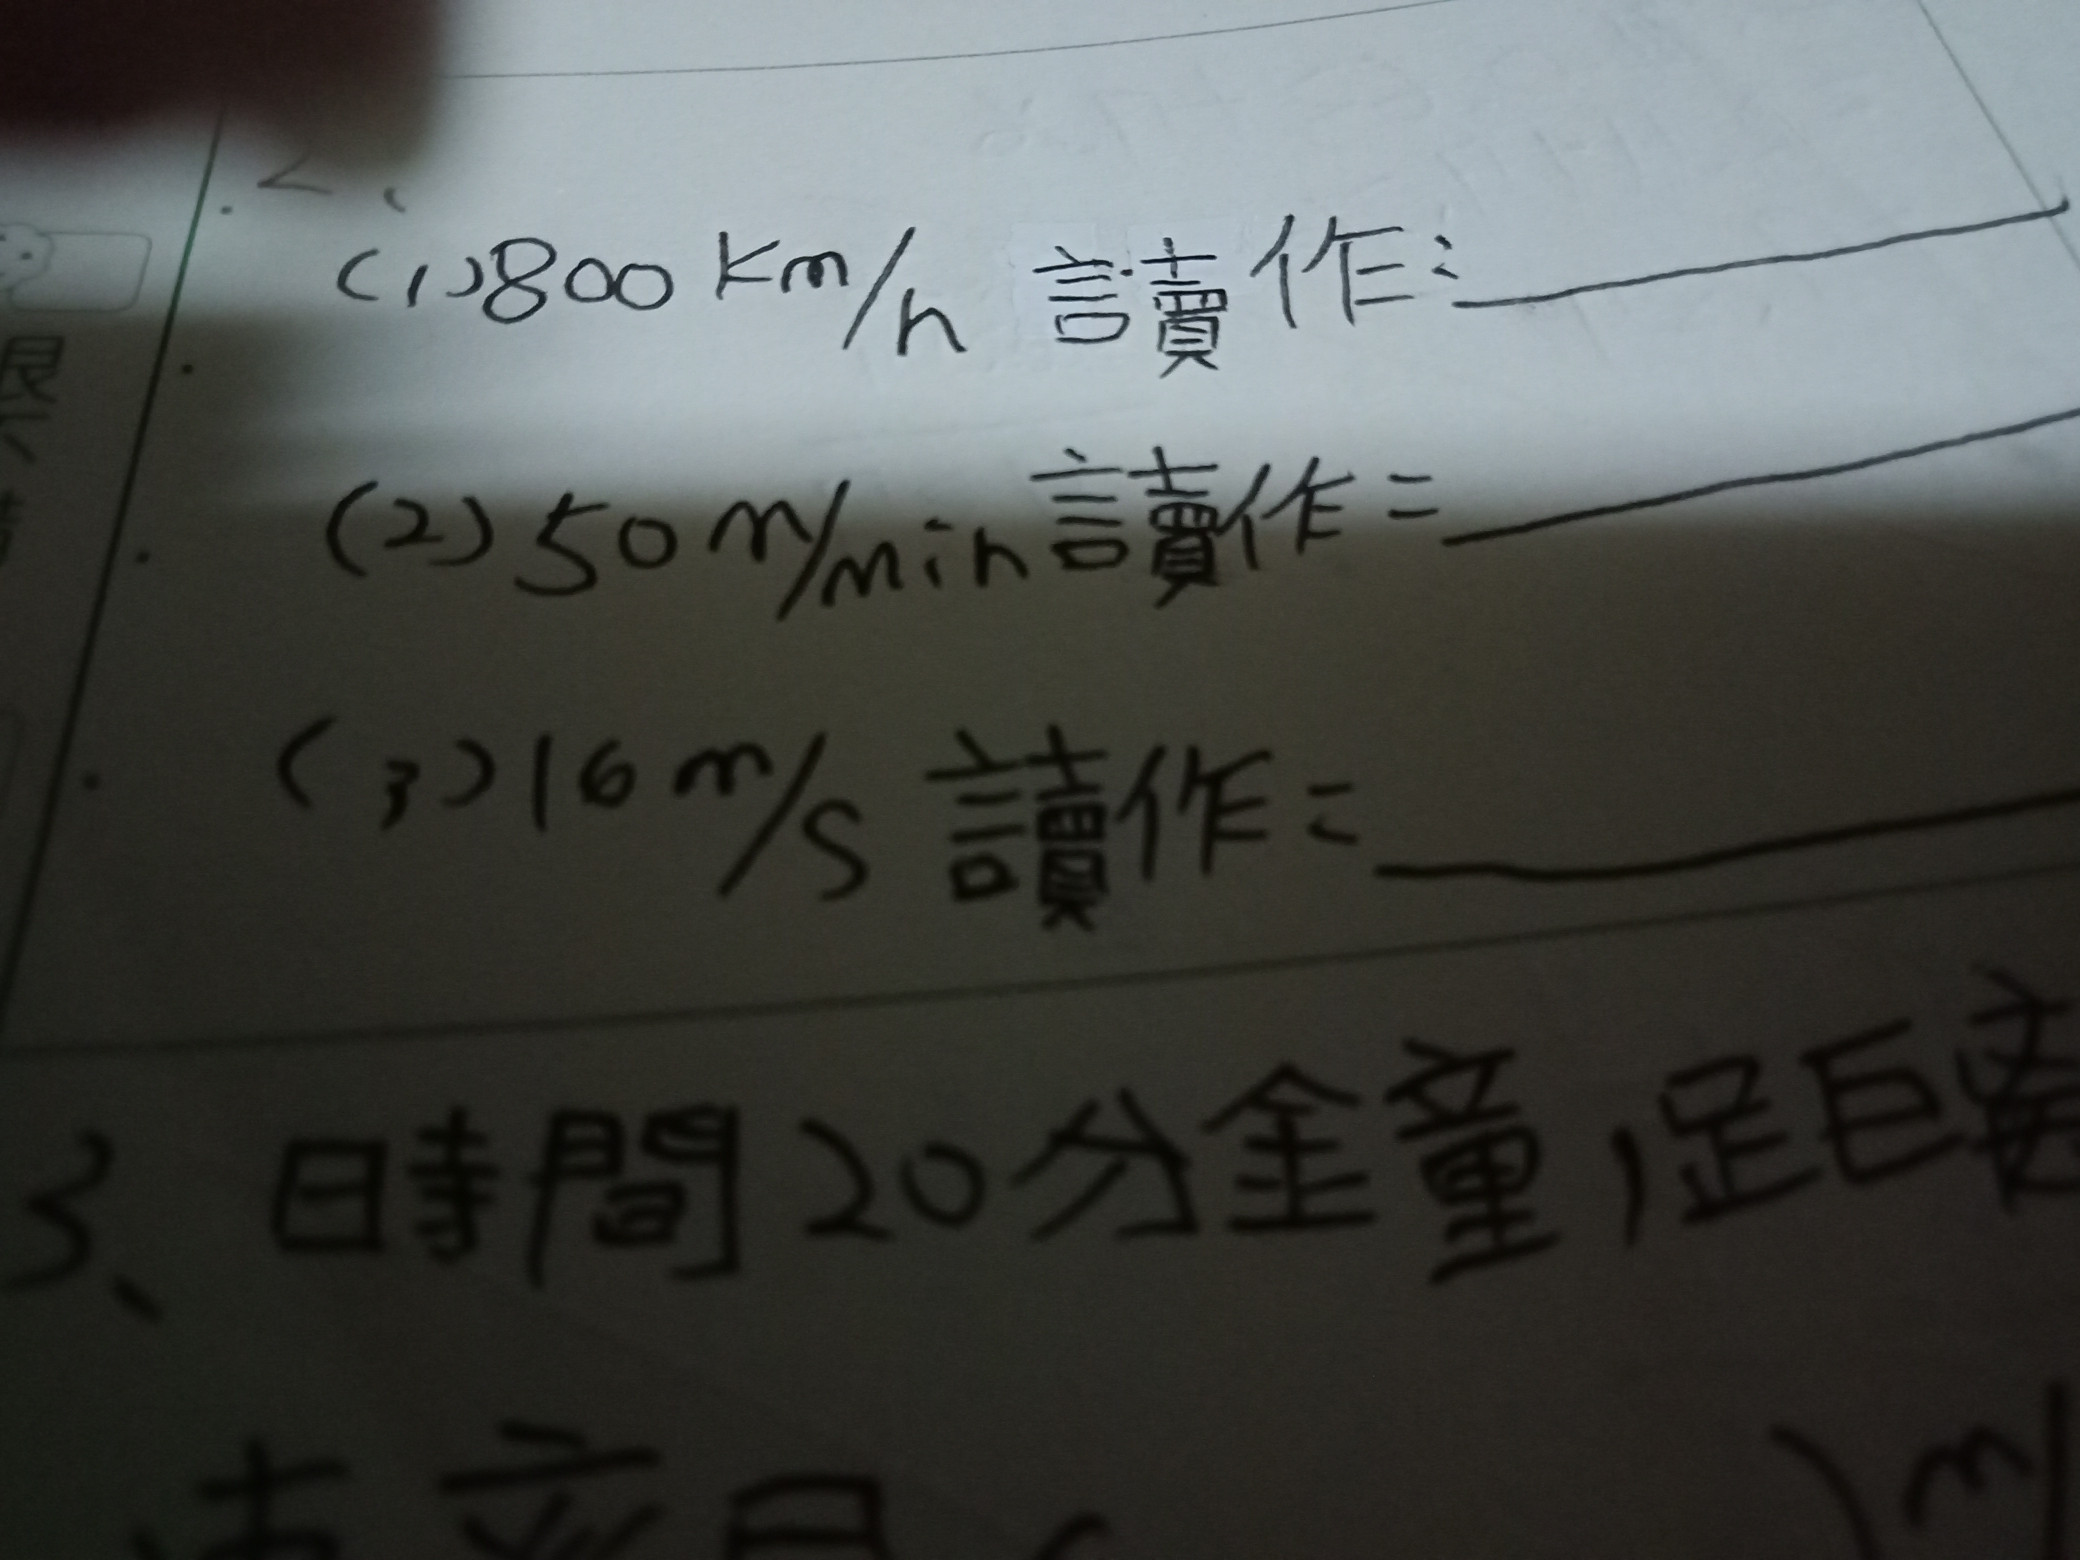 2、
(1)800 km/h 讀作:
(2)50 m/min讀作:
(3)16 m/s 讀作:
3、時間20分鐘,距離
)m/